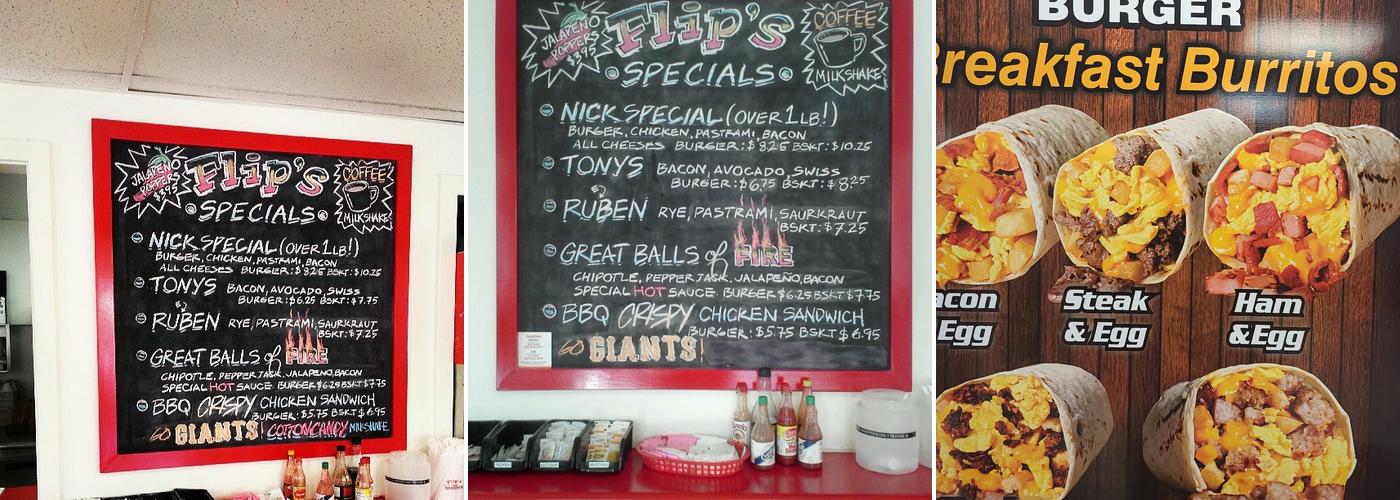 JALAPEÑO
POPPERS
$3.95
Flip's
SPECIALS
COFFEE
MILKSHAKE
NICK SPECIAL (OVER 1 LB!)
BURGER, CHICKEN, PASTRAMI, BACON
ALL CHEESES BURGER: $8.25 BSKT: $10.25
TONYS BACON, AVOCADO, SWISS
BURGER: $6.25 BSKT: $7.75
RUBEN RYE, PASTRAMI, SAURKRAUT
BSKT: $7.25
GREAT BALLS of FIRE
CHIPOTLE, PEPPER JACK, JALAPENO, BACON
SPECIAL HOT SAUCE BURGER $6.25 BSKT $7.75
BBQ CRISPY CHICKEN SANDWICH
BURGER: $5.75 BSKT $6.95
GO GIANTS! COTTON CANDY MILKSHAKE
JALAPEÑO
POPPERS
$3.95
Flip's
SPECIALS
COFFEE
MILKSHAKE
NICK SPECIAL (OVER 1 LB!)
BURGER, CHICKEN, PASTRAMI, BACON
ALL CHEESES BURGER: $8.25 BSKT: $10.25
TONYS BACON, AVOCADO, SWISS
BURGER: $6.75 BSKT: $8.25
RUBEN RYE, PASTRAMI, SAURKRAUT
BSKT: $7.25
GREAT BALLS of FIRE
CHIPOTLE, PEPPER JACK, JALAPEÑO, BACON
SPECIAL HOT SAUCE BURGER $6.25 BSKT $7.75
BBQ CRISPY CHICKEN SANDWICH
BURGER: $5.75 BSKT $6.95
GO GIANTS!
BURGER
Breakfast Burritos
acon
Egg
Steak
& Egg
Ham
& Egg